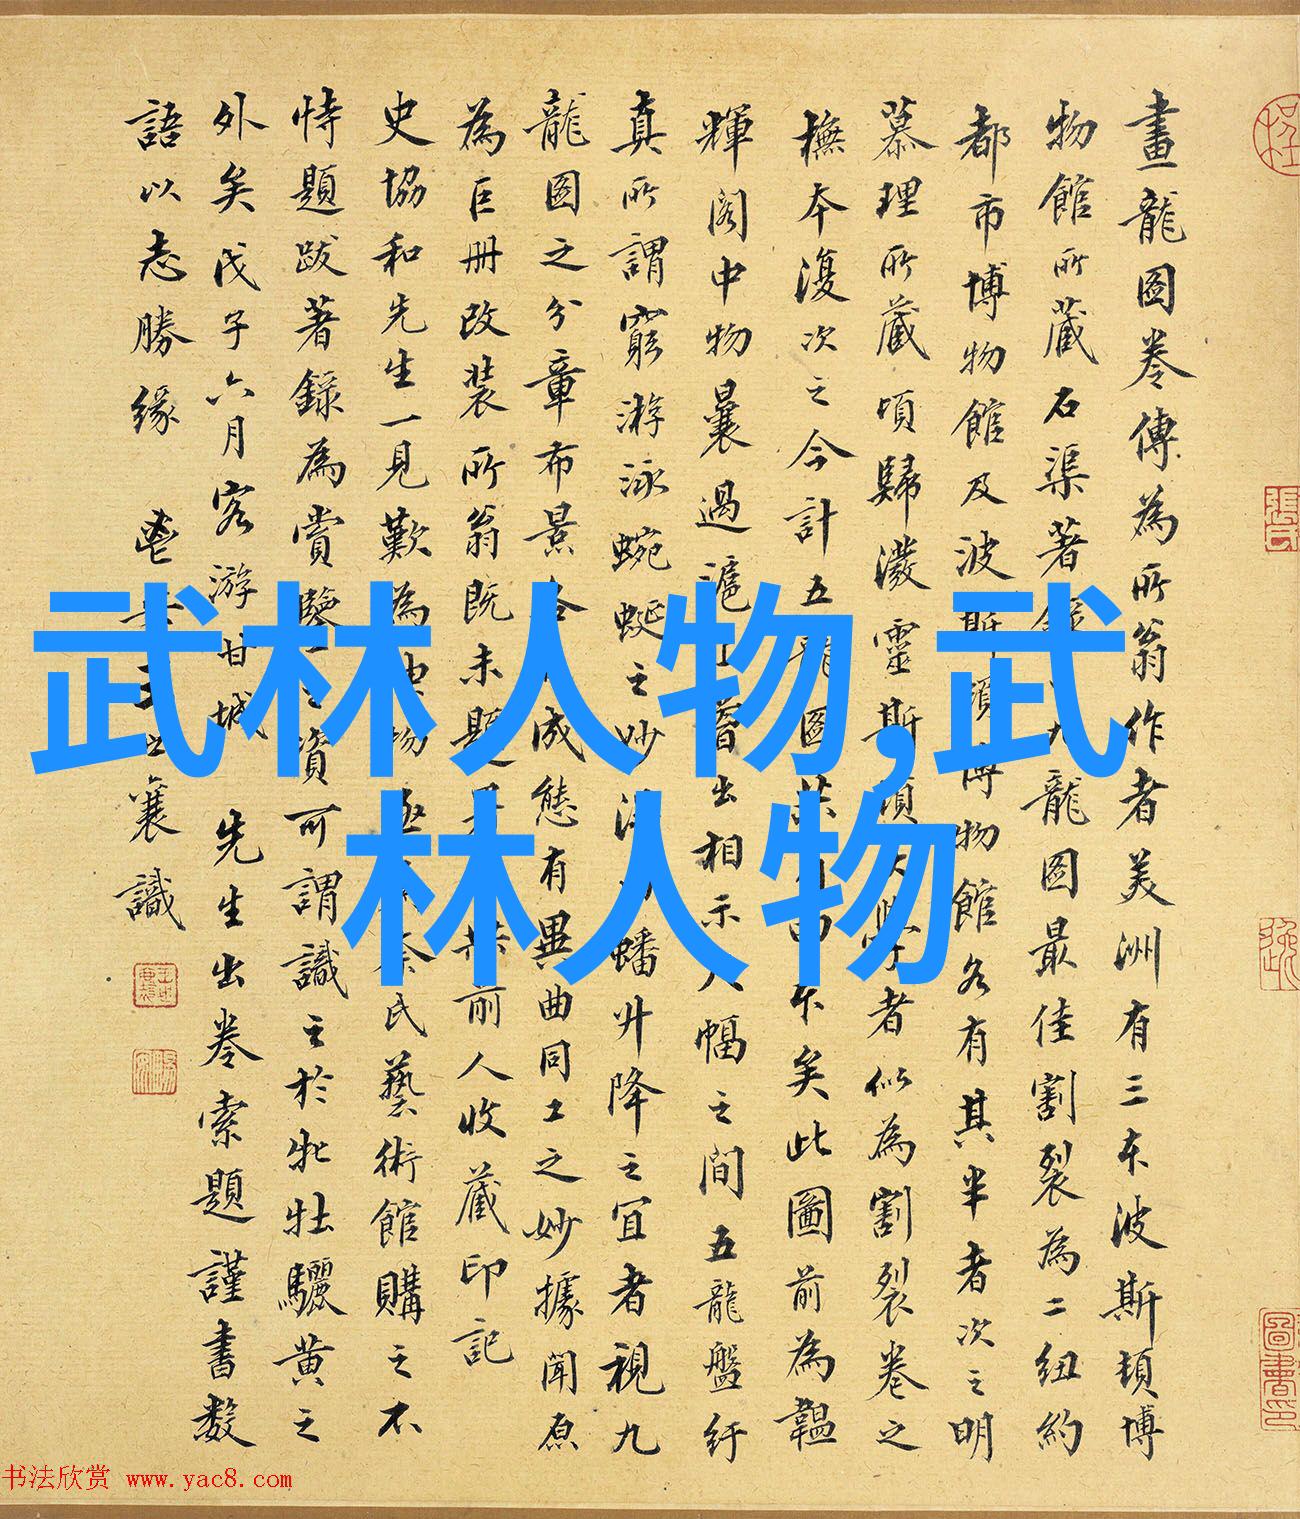 畫龍圖卷傳為所翁作者美洲有三本波斯頓博
物館所藏石渠著錄九龍圖最佳割裂為二紐約
都市博物館及波斯頓博物館各有其半者次之明
慕理所藏頃歸灋靈斯頓大學者似為割裂卷之
橅本復次之今計五龍圖本矣此圖前為韞
輝閣中物曩過滬上出相示尺幅之間五龍盤紆
真所謂窮游泳蜿蜒之妙蟠升降之宜者視九
龍圖之分章布景成態有異曲同工之妙據聞原
為巨冊改裝所翁既未題前人收藏印記
史協和先生一見歎為神物亟奈氏藝術館購之不
特題跋著錄為賞鑒之資可謂識之於牝牡驪黃之
外矣戊子六月客游甘城 先生出卷索題謹書數
語以志勝緣 鬯襄識
武林人物,武
林人物
書法欣赏 www.yac8.com